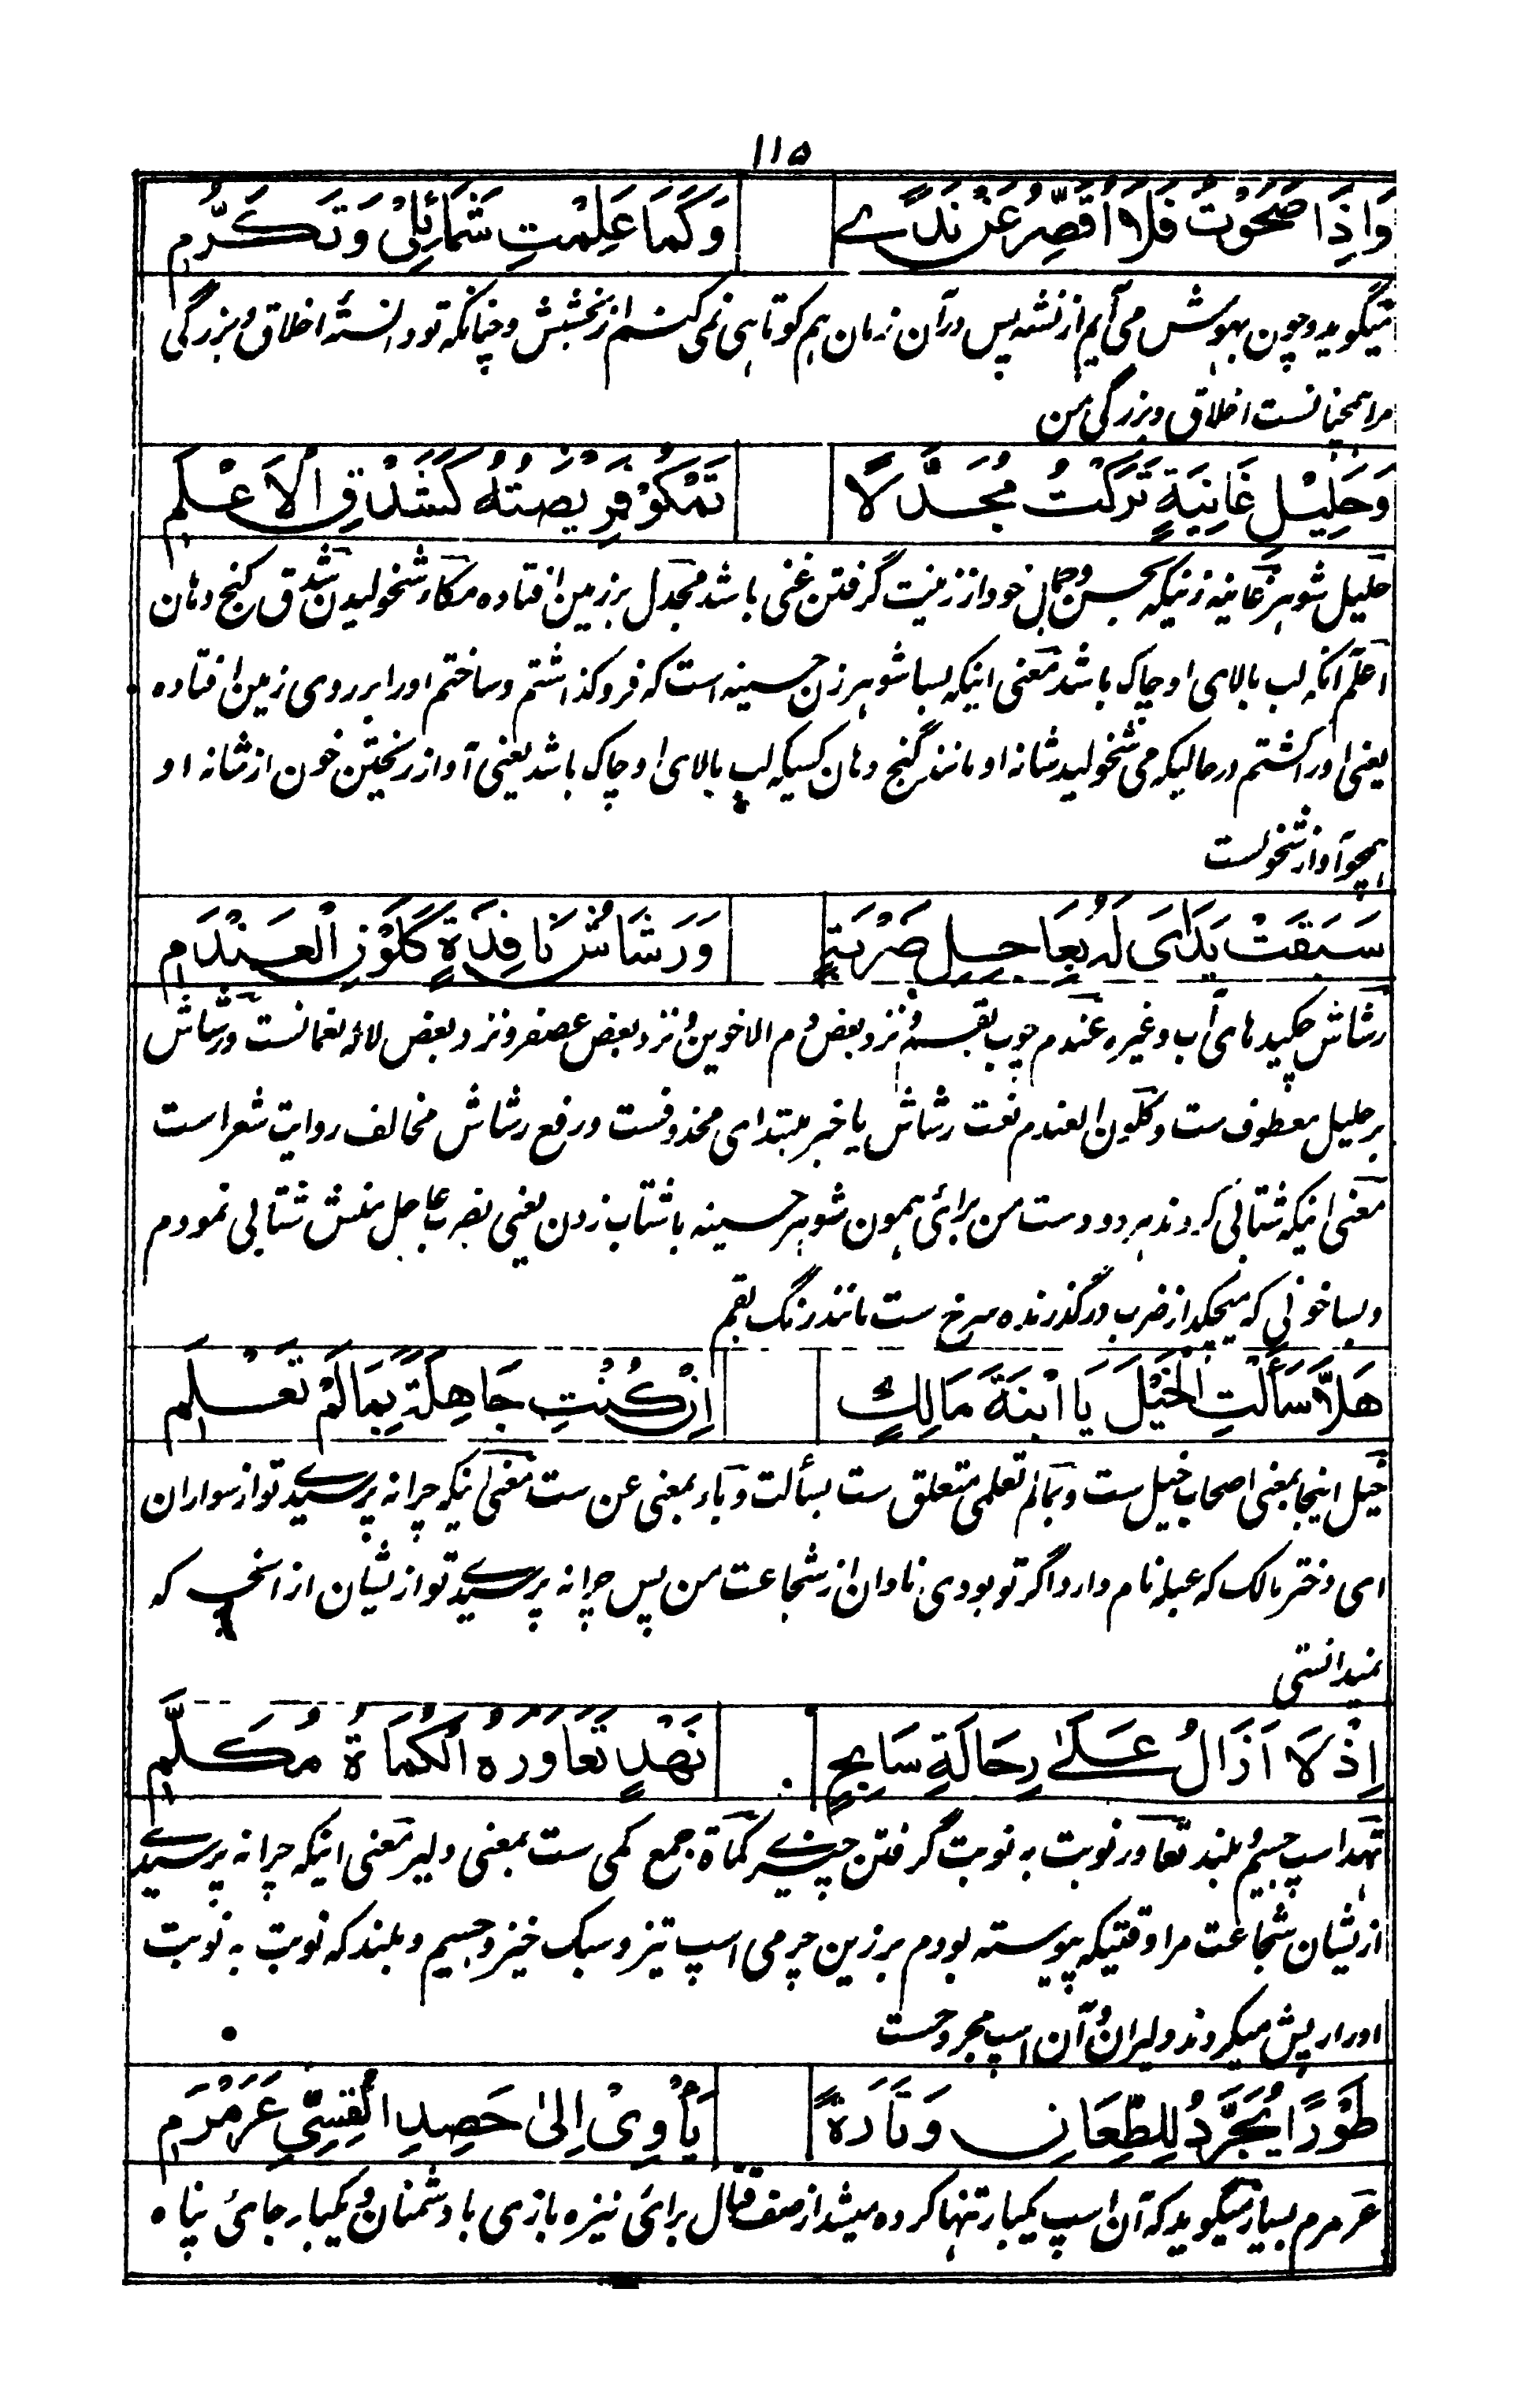 ۱۱۵
وَاِذَا صَحَوْتُ فَلَا اُقَصِّرُ عَنْ نَدًے وَكَمَا عَلِمْتِ شَمَائِلِيْ وَتَكَرُّمِ
میگوید و چون بهوش می آیم از نشه پس در آن زمان هم کوتاهی نمی کنم از بخشش و چنانکه تو دانستهٔ اخلاق و بزرگی
مرا همچنانست اخلاق و بزرگی من
وَحَلِيْلِ غَانِيَةٍ تَرَكْتُ مُجَدَّلًا تَمْكُوْ فَرِيْصَتُهُ كَشِدْقِ الْاَعْلَمِ
حلیل شوهر غانیه زنیکه بحسن و جمال خود از زینت گرفتن غنی باشد مجدل بر زمین افتاده مکاء شخولیدن شدق کنج دهان
اعلم آنکه لب بالای او چاک باشد معنی اینکه بسا شوهر زن حسینه است که فرو گذاشتم و ساختم او را بر روی زمین افتاده
یعنی او را کشتم در حالیکه می شخولید شانه او مانند کنج دهان کسیکه لب بالای او چاک باشد یعنی آواز ریختن خون از شانه او
همچو آواز شخولست
سَبَقَتْ يَدَايَ لَهُ بِعَاجِلِ ضَرْبَةٍ وَرَشَاشِ نَافِذَةٍ كَلَوْنِ الْعَنْدَمِ
رشاش چکیدهای آب و غیره عندم چوب بقم و نزد بعض دم الاخوین و نزد بعض عصفر و نزد بعض لاله نعمانست و رشاش
بر حلیل معطوف ست و کلون العندم نعت رشاش یا خبر مبتدای محذوفست و رفع رشاش مخالف روایت شعر است
معنی اینکه شتابی کردند هر دو دست من برائی همون شوهر حسینه با شتاب زدن یعنی بضرب عاجل بقتلش شتابی نمودم
و بسا خونی که میچکید از ضرب در گذرنده سرخ ست مانند رنگ بقم
هَلَّا سَأَلْتِ الْخَيْلَ يَا ابْنَةَ مَالِكٍ اِنْ كُنْتِ جَاهِلَةً بِمَا لَمْ تَعْلَمِ
خیل اینجا بمعنی اصحاب خیل ست و بما لم تعلمی متعلق ست بسألت و باء بمعنی عن ست معنی اینکه چرا نه پرسیدے تو از سواران
ای دختر مالک که عبله نام دارد اگر تو بودی نادان از شجاعت من پس چرا نه پرسیدے تو ازیشان از انچه که
نمیدانستی
اِذْ لَا اَزَالُ عَلَے رِحَالَةِ سَابِحٍ نَهْدٍ تَعَاوَرَهُ الْكُمَاةُ مُكَلَّمِ
نهد اسپ جسیم و بلند تعاور نوبت به نوبت گرفتن چیزے کماة جمع کمی ست بمعنی دلیر معنی اینکه چرا نه پرسیدے
ازیشان شجاعت مرا وقتیکه پیوسته بودم بر زین چرمی اسپ تیز و سبک خیز و جسیم و بلند که نوبت به نوبت
او را ریش میکردند دلیران و آن اسپ مجروحست
طَوْرًا يُجَرَّدُ لِلطِّعَانِ وَتَارَةً يَأْوِيْ اِلىٰ حَصِدِ الْقِسِيِّ عَرَمْرَمِ
عرمرم بسیار میگوید که آن اسپ یکبار تنها کرده میشد از صف قتال برائی نیزه بازی با دشمنان و یکبار جائی پناه